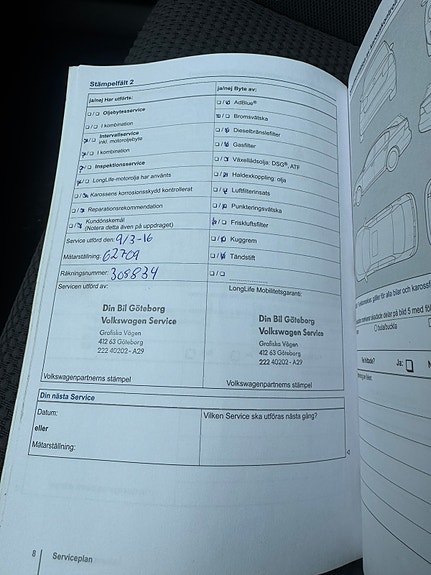 Stämpelfält 2
ja/nej Har utförts:
Oljebytesservice
I kombination
Intervallservice
inkl. motoroljebyte
I kombination
Inspektionsservice
LongLife-motorolja har använts
Karossens korrosionsskydd kontrollerat
Reparationsrekommendation
Kundönskemål
(Notera detta även på uppdraget)
ja/nej Byte av:
AdBlue®
Bromsvätska
Dieselbränslefilter
Gasfilter
Växellådsolja: DSG®, ATF
Haldexkoppling: olja
Luftfilterinsats
Punkteringsvätska
Friskluftsfilter
Kuggrem
Tändstift
Service utförd den: 9/3-16
Mätarställning: 62709
Räkningsnummer: 308834
Servicen utförd av:
LongLife Mobilitetsgaranti:
Din Bil Göteborg
Volkswagen Service
Grafiska Vägen
412 63 Göteborg
222 40202 - A29
Volkswagenpartnerns stämpel
Din Bil Göteborg
Volkswagen Service
Grafiska Vägen
412 63 Göteborg
222 40202 - A29
Volkswagenpartnerns stämpel
Din nästa Service
Datum:
eller
Mätarställning:
Vilken Service ska utföras nästa gång?
8 Serviceplan
Ja: